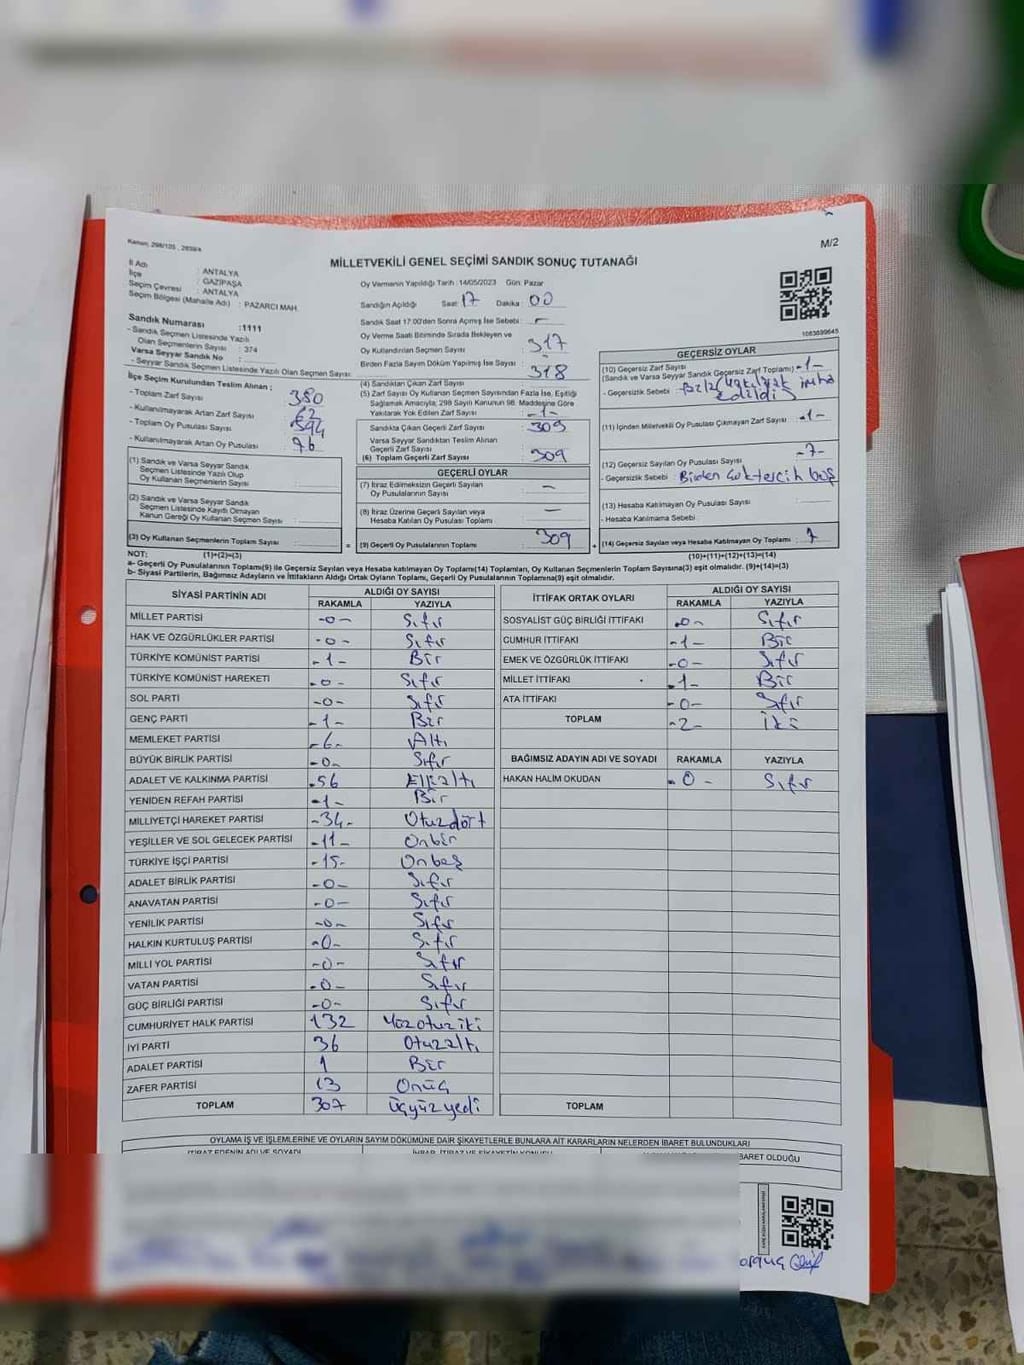 Kanun; 298/105 , 2839/4
M/2
MİLLETVEKİLİ GENEL SEÇİMİ SANDIK SONUÇ TUTANAĞI
İl Adı : ANTALYA
İlçe : GAZİPAŞA
Seçim Çevresi : ANTALYA
Seçim Bölgesi (Mahalle Adı) : PAZARCI MAH.
Sandık Numarası :1111
- Sandık Seçmen Listesinde Yazılı
Olan Seçmenlerin Sayısı : 374
Varsa Seyyar Sandık No :
- Seyyar Sandık Seçmen Listesinde Yazılı Olan Seçmen Sayısı:
Oy Vermenin Yapıldığı Tarih :14/05/2023 Gün: Pazar
Sandığın Açıldığı Saat: 17 Dakika : 00
Sandık Saat 17:00'den Sonra Açımış İse Sebebi : -
Oy Verme Saati Bitiminde Sırada Bekleyen ve
Oy Kullandırılan Seçmen Sayısı : 317
Birden Fazla Sayım Döküm Yapılmış İse Sayısı : 318
1083699645
İlçe Seçim Kurulundan Teslim Alınan ;
- Toplam Zarf Sayısı : 380
- Kullanılmayarak Artan Zarf Sayısı : 62
- Toplam Oy Pusulası Sayısı : 394
- Kullanılmayarak Artan Oy Pusulası : 76
(1) Sandık ve Varsa Seyyar Sandık
Seçmen Listesinde Yazılı Olup
Oy Kullanan Seçmenlerin Sayısı :
(2) Sandık ve Varsa Seyyar Sandık
Seçmen Listesinde Kayıtlı Olmayan
Kanun Gereği Oy Kullanan Seçmen Sayısı :
(3) Oy Kullanan Seçmenlerin Toplam Sayısı :
(4) Sandıktan Çıkan Zarf Sayısı
(5) Zarf Sayısı Oy Kullanan Seçmen Sayısından Fazla İse, Eşitliği
Sağlamak Amacıyla, 298 Sayılı Kanunun 98. Maddesine Göre
Yakılarak Yok Edilen Zarf Sayısı : -1-
Sandıkta Çıkan Geçerli Zarf Sayısı : 309
Varsa Seyyar Sandıktan Teslim Alınan
Geçerli Zarf Sayısı :
(6) Toplam Geçerli Zarf Sayısı : 309
GEÇERLİ OYLAR
(7) İtiraz Edilmeksizin Geçerli Sayılan
Oy Pusulalarının Sayısı : -
(8) İtiraz Üzerine Geçerli Sayılan veya
Hesaba Katılan Oy Pusulası Toplamı : -
(9) Geçerli Oy Pusulalarının Toplamı : 309
GEÇERSİZ OYLAR
(10) Geçersiz Zarf Sayısı
(Sandık ve Varsa Seyyar Sandık Geçersiz Zarf Toplamı) -1-
- Geçersizlik Sebebi : imha
edildi
(11) İçinden Milletvekili Oy Pusulası Çıkmayan Zarf Sayısı : -1-
(12) Geçersiz Sayılan Oy Pusulası Sayısı : -7-
- Geçersizlik Sebebi : Birden Çok tercih boş
(13) Hesaba Katılmayan Oy Pusulası Sayısı :
- Hesaba Katılmama Sebebi
(14) Geçersiz Sayılan veya Hesaba Katılmayan Oy Toplamı : 7
NOT: (1)+(2)=(3) (10)+(11)+(12)+(13)=(14)
a- Geçerli Oy Pusulasının Toplamı(9) ile Geçersiz Sayılan veya Hesaba katılmayan Oy Toplamı(14) Toplamları, Oy Kullanan Seçmenlerin Toplam Sayısına(3) eşit olmalıdır. (9)+(14)=(3)
b- Siyasi Partilerin, Bağımsız Adayların ve İttifakların Aldığı Ortak Oyların Toplamı, Geçerli Oy Pusulalarının Toplamına(9) eşit olmalıdır.
SİYASİ PARTİNİN ADI ALDIĞI OY SAYISI
RAKAMLA YAZIYLA
MİLLET PARTİSİ -0- Sıfır
HAK VE ÖZGÜRLÜKLER PARTİSİ -0- Sıfır
TÜRKİYE KOMÜNİST PARTİSİ -1- Bir
TÜRKİYE KOMÜNİST HAREKETİ -0- Sıfır
SOL PARTİ -0- Sıfır
GENÇ PARTİ -1- Bir
MEMLEKET PARTİSİ -6- Altı
BÜYÜK BİRLİK PARTİSİ -0- Sıfır
ADALET VE KALKINMA PARTİSİ -56 Ellialtı
YENİDEN REFAH PARTİSİ -1- Bir
MİLLİYETÇİ HAREKET PARTİSİ -34- Otuzdört
YEŞİLLER VE SOL GELECEK PARTİSİ -11- Onbir
TÜRKİYE İŞÇİ PARTİSİ -15- Onbeş
ADALET BİRLİK PARTİSİ -0- Sıfır
ANAVATAN PARTİSİ -0- Sıfır
YENİLİK PARTİSİ -0- Sıfır
HALKIN KURTULUŞ PARTİSİ -0- Sıfır
MİLLİ YOL PARTİSİ -0- Sıfır
VATAN PARTİSİ -0- Sıfır
GÜÇ BİRLİĞİ PARTİSİ -0- Sıfır
CUMHURİYET HALK PARTİSİ 132 Yüzotuziki
İYİ PARTİ 36 Otuzaltı
ADALET PARTİSİ 1 Bir
ZAFER PARTİSİ 13 Onüç
TOPLAM 307 üçyüzyedi
İTTİFAK ORTAK OYLARI ALDIĞI OY SAYISI
RAKAMLA YAZIYLA
SOSYALİST GÜÇ BİRLİĞİ İTTİFAKI -0- Sıfır
CUMHUR İTTİFAKI -1- Bir
EMEK VE ÖZGÜRLÜK İTTİFAKI -0- Sıfır
MİLLET İTTİFAKI -1- Bir
ATA İTTİFAKI -0- Sıfır
TOPLAM -2- İki
BAĞIMSIZ ADAYIN ADI VE SOYADI RAKAMLA YAZIYLA
HAKAN HALİM OKUDAN -0- Sıfır
TOPLAM
OYLAMA İŞ VE İŞLEMLERİNE VE OYLARIN SAYIM DÖKÜMÜNE DAİR ŞİKAYETLERLE BUNLARA AİT KARARLARIN NELERDEN İBARET BULUNDUKLARI
İTİRAZ EDENİN ADI VE SOYADI İHBAR, İTİRAZ VE ŞİKAYETİN KONUSU BARET OLDUĞU